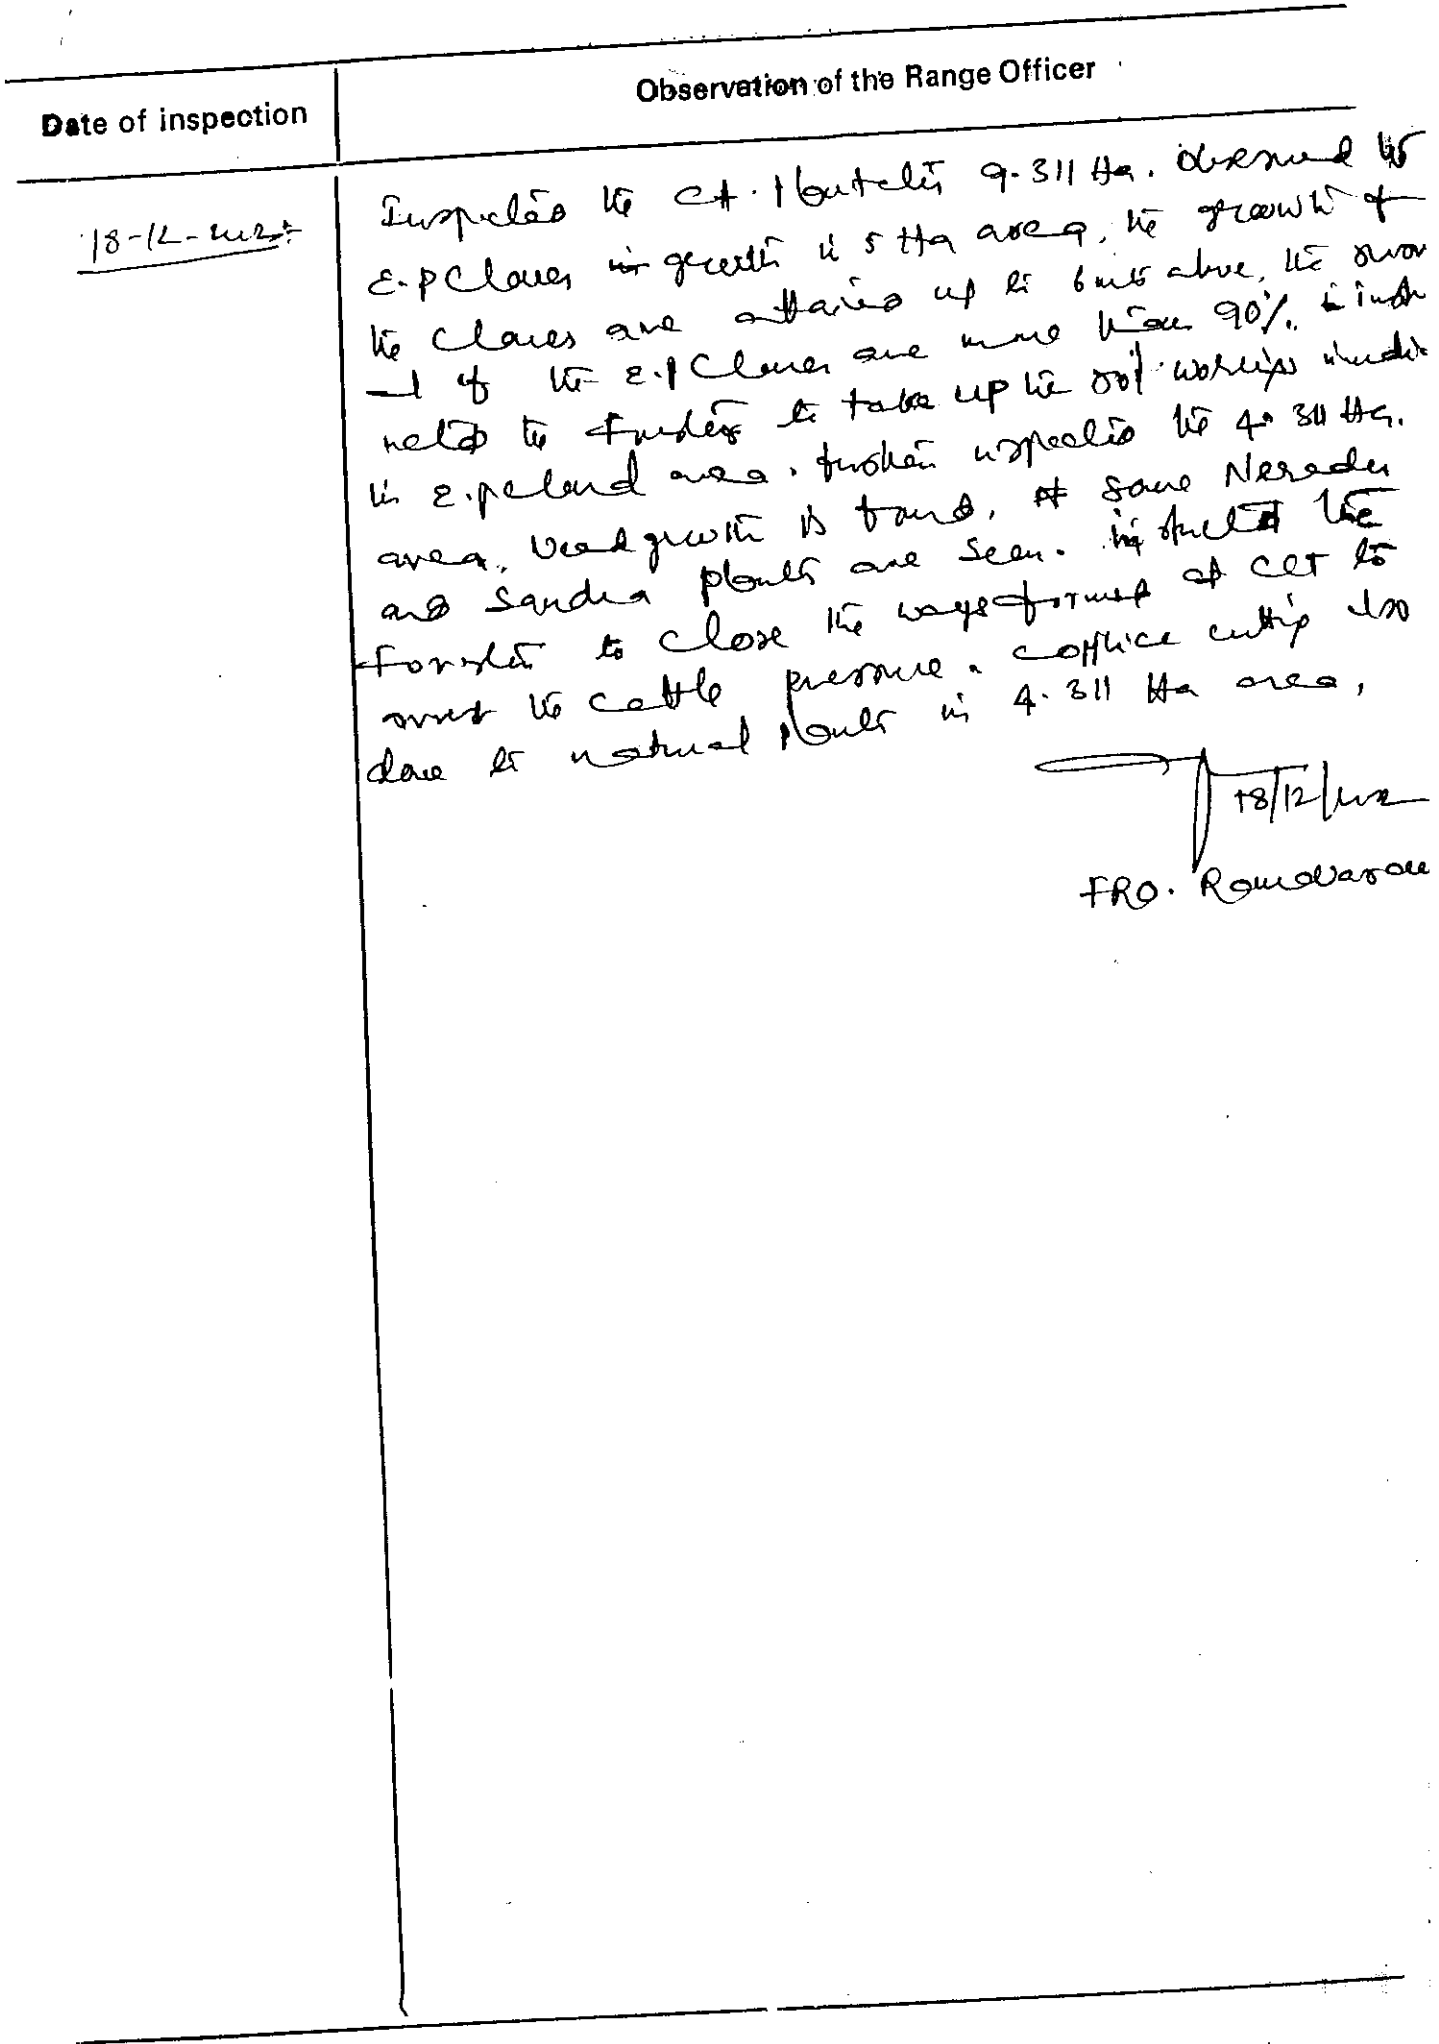 Observation of the Range Officer
Date of inspection
18-12-
Inspected the CA. Plantation 9.311 Ha. observed the
E.P Clones growth is 5 Ha area, the growth of
the Clones are attained up to 6 mts above, the
of the E.P Clones are more than 90%.
the to take up the soil working
in E.P area. further inspected the 4.311 Ha.
area, weed growth is found, some Neredu
and Sandra plants are seen. instructed the
Forester to close the ways formed at CCT to
the cattle pressure. coppice cutting also
done to natural plants in 4.311 Ha area,
18/12/
FRO.